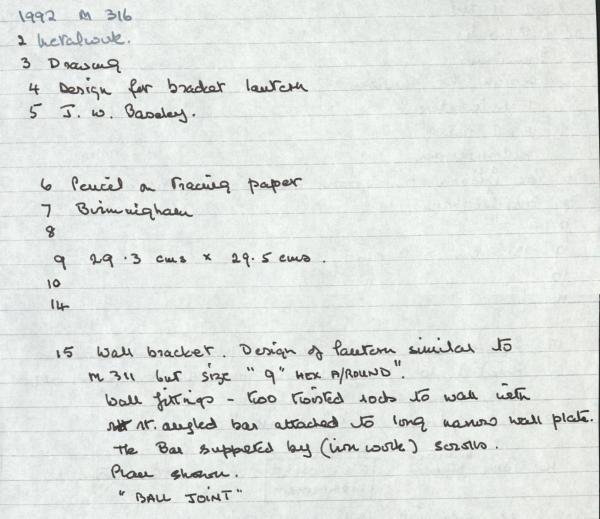 1992 M 316
2 Metalwork.
3 Drawing
4 Design for bracket lantern
5 J. W. Baseley.
6 Pencil on Tracing paper
7 Birmingham
8
9 29.3 cms x 29.5 cms.
10
14
15 Wall bracket. Design of lantern similar to
M 311 but size "9" HEX A/ROUND".
Wall fittings - two twisted rods to wall with
rt. angled bar attached to long narrow wall plate.
The Bar supported by (iron work) scrolls.
Plan shown.
"BALL JOINT"